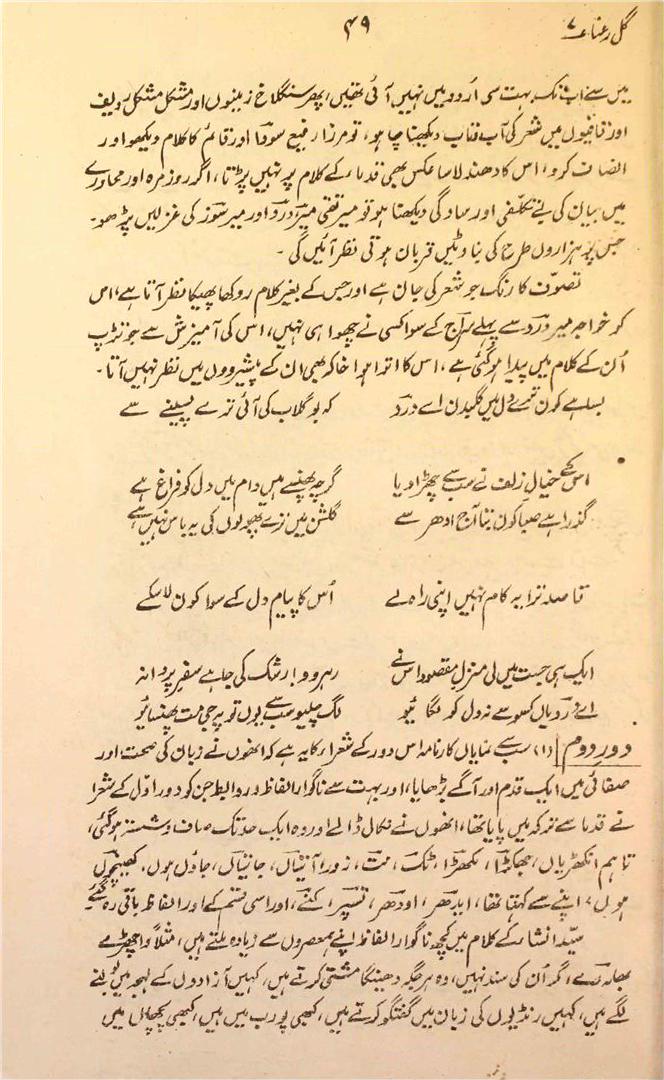 گل رعنا ۷
۴۹
میں سے اب تک بہت سی اُردو میں نہیں آئی تھیں، پھر سنگلاخ زمینوں اور مشکل مشکل ردیف
اور قافیوں میں شعر کی آب و تاب دیکھنا چاہو، تو مرزا رفیع سودا اور قائم کا کلام دیکھو اور
انصاف کرو، اس کا دھندلا سا عکس بھی قدماء کے کلام پر نہیں پڑتا، اگر روز مرہ اور محاورے
میں بیان کی بے تکلفی اور سادگی دیکھنا ہو تو میر تقی میر، درد اور میر سوز کی غزلیں پڑھو۔
جس پر ہزاروں طرح کی بناوٹیں قربان ہوتی نظر آئیں گی۔
تصوف کا رنگ جو شعر کی جان ہے اور جس کے بغیر کلام روکھا پھیکا نظر آتا ہے، اس
کو خواجہ میر درد سے پہلے سراج کے سوا کسی نے چھوا ہی نہیں، اس کی آمیزش سے جو تڑپ
اُن کے کلام میں پیدا ہو گئی ہے، اس کا اترا ہوا خاکہ بھی ان کے پیشرووں میں نظر نہیں آتا۔
بسا ہے کون ترے دل میں گلبدن اے درد
کہ بو گلاب کی آئی ترے پسینے سے
اس کے خیال زلف نے سب سے چھڑا دیا
گرچہ پھنسے ہیں دام میں دل کو فراغ ہے
گذرا ہے صبا کون بتا آج ادھر سے
گلشن میں ترے پھولوں کی یہ باس نہیں ہے
قاصد ترا یہ کام نہیں اپنی راہ لے
اُس کا پیام دل کے سوا کون لا سکے
ایک ہی جست میں لی منزل مقصود اس نے
رہرو و ! رشک کی جا ہے سفر پروانہ
اے درد یاں کسو سے نہ دل کو لگائیو
لگ چلیو سب سے یوں تو پہ جی مت پھنسائیو
دور دوم (۱) سب سے نمایاں کارنامہ اس دور کے شعراء کا یہ ہے کہ انھوں نے زبان کی صحت اور
صفائی میں ایک قدم اور آگے بڑھایا، اور بہت سے ناگوار الفاظ و روابط جن کو دور اوّل کے شعرا
نے قدما سے ترکہ میں پایا تھا، انھوں نے نکال ڈالے اور وہ ایک حد تک صاف و شستہ ہو گئی،
تاہم انکھڑیاں، جھمکڑا، مکھڑا، ٹک، مت، زور، آئیاں، جانیاں، جاؤں ہوں، کھینچوں
ہوں، اپنے سے کہتا تھا، ایدھر، اودھر، تسپر، کنے، اور اسی قسم کے اور الفاظ باقی رہ گئے۔
سید انشاء کے کلام میں کچھ ناگوار الفاظ اپنے ہمعصروں سے زیادہ ملتے ہیں، مثلاً واچھڑے
بھلہ رے، اگر اُن کی سند نہیں، وہ ہر جگہ دھینگا مشتی کرتے ہیں، کہیں آزادوں کے لہجہ میں بولنے
لگے ہیں، کہیں رنڈیوں کی زبان میں گفتگو کرتے ہیں، کبھی پورب میں ہیں، کبھی پچھاں میں